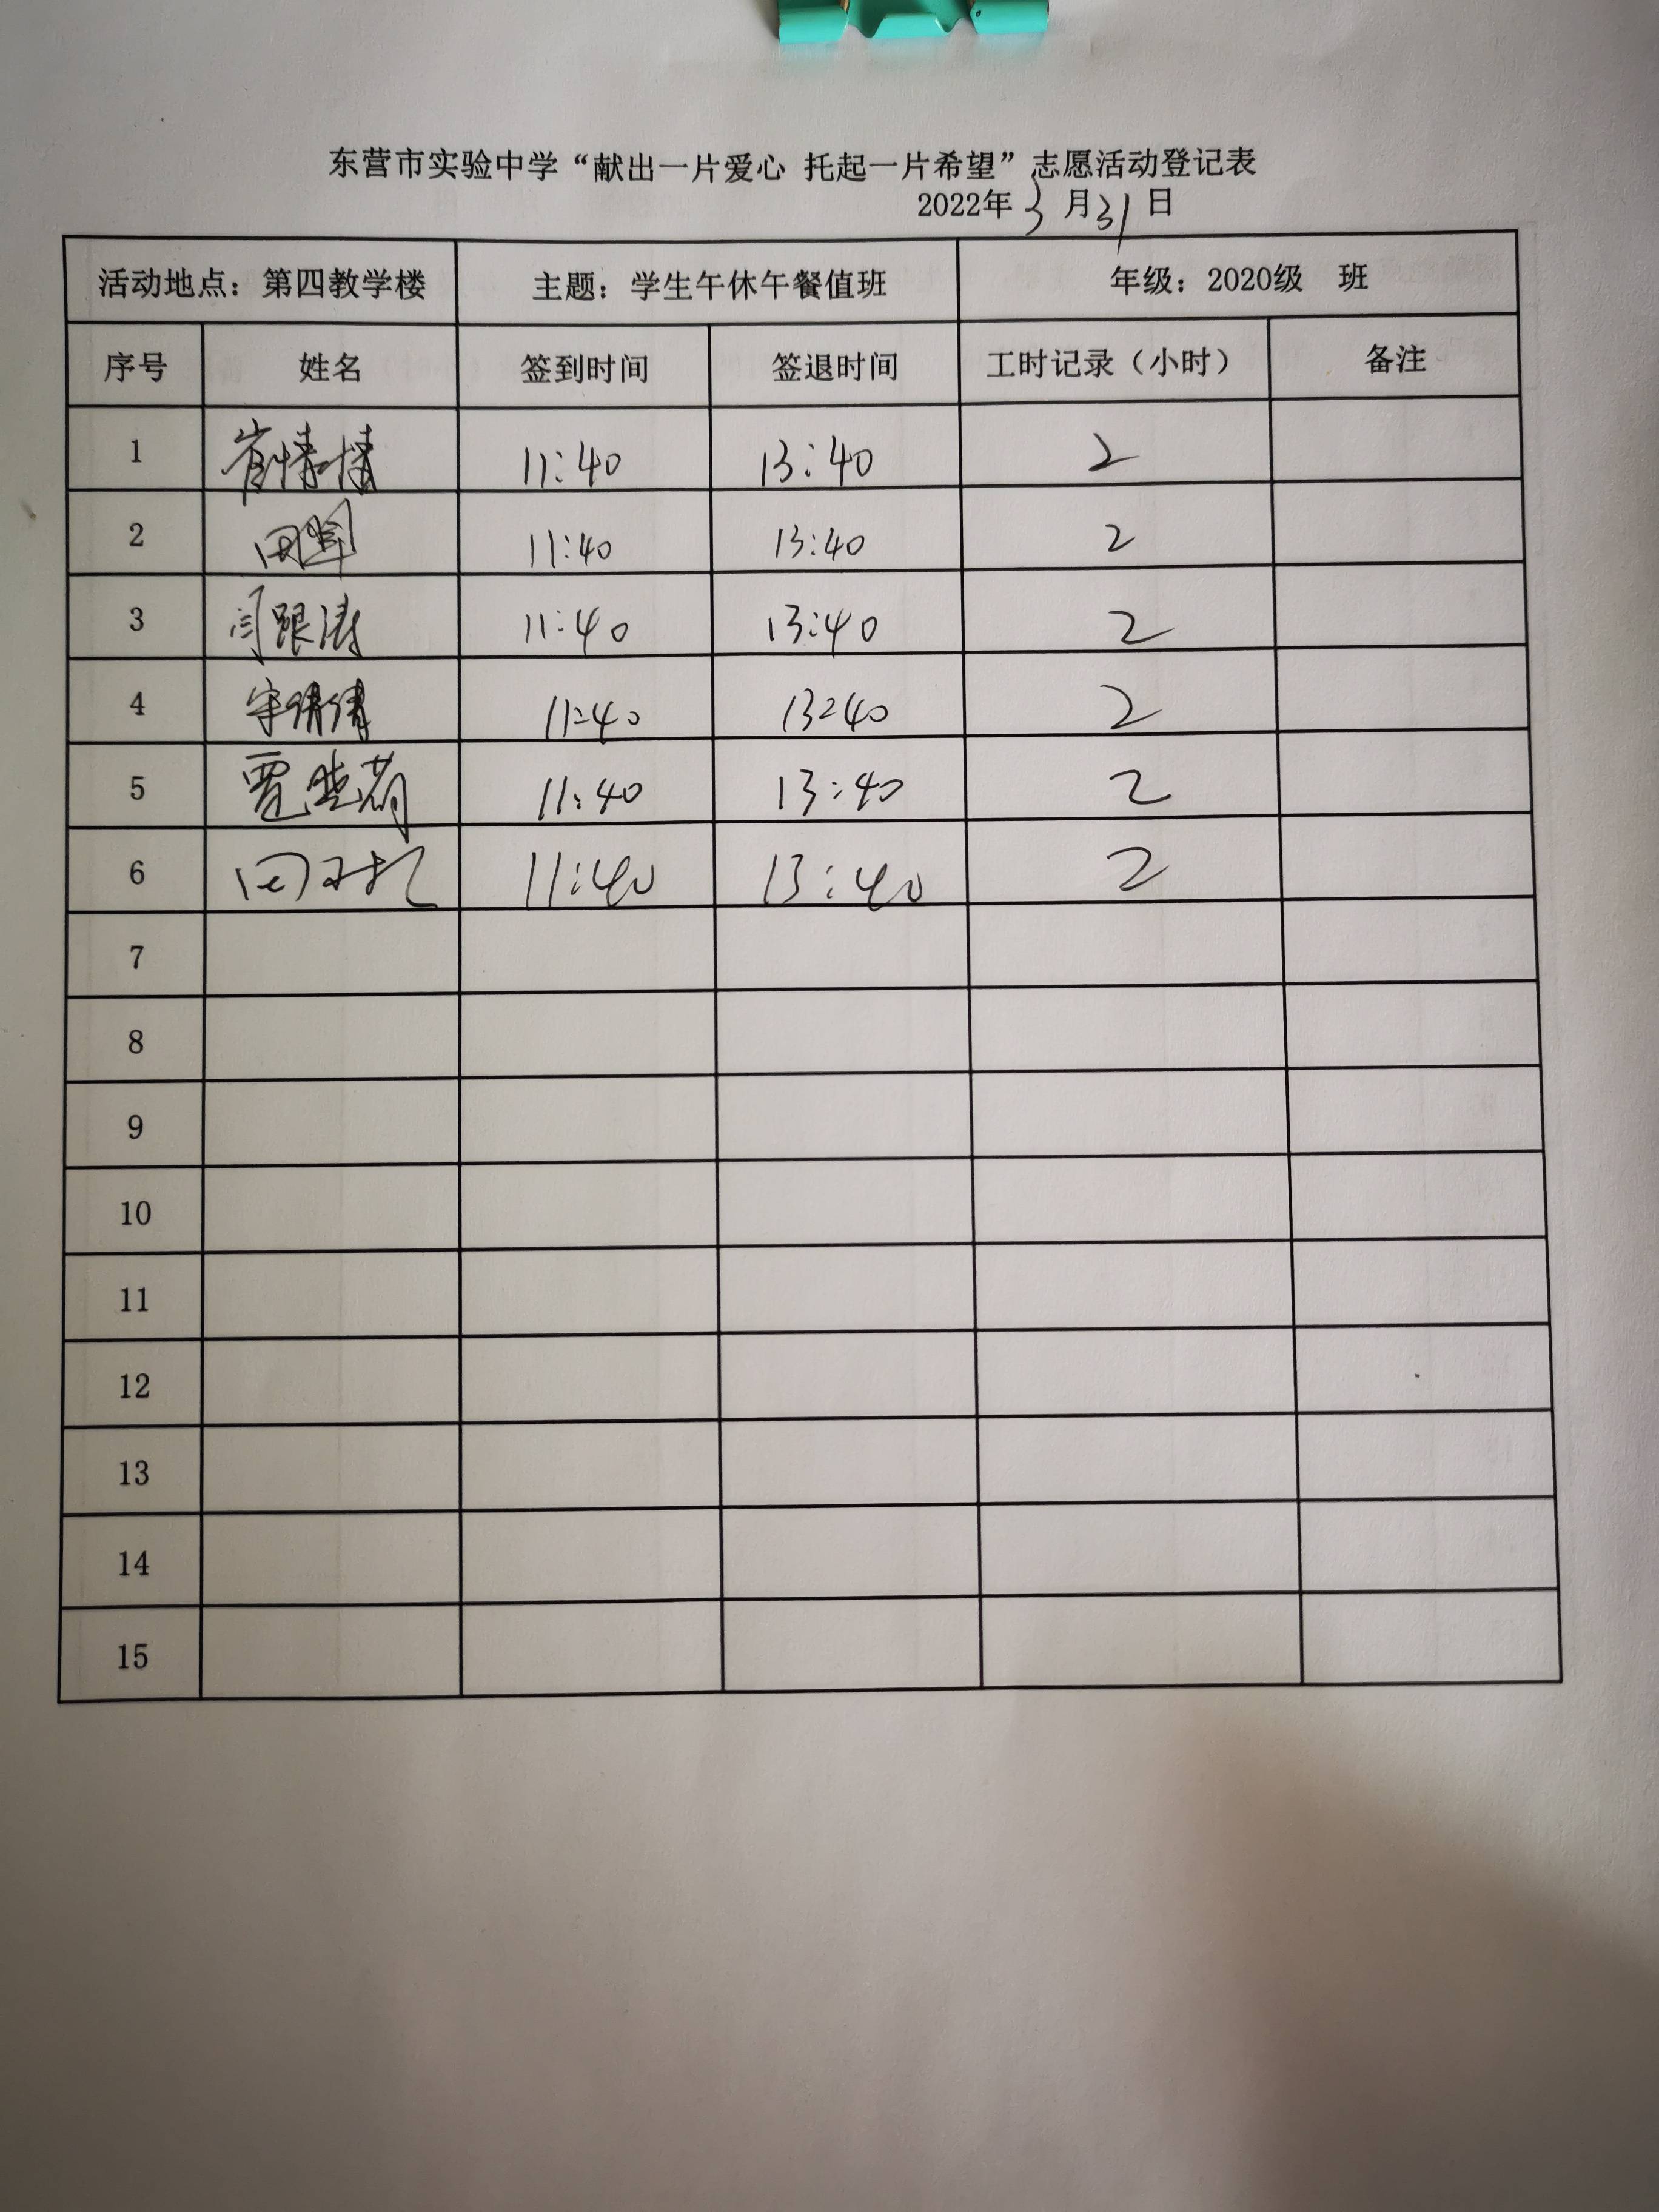 东营市实验中学“献出一片爱心 托起一片希望”志愿活动登记表
2022年3月31日
活动地点：第四教学楼 主题：学生午休午餐值班 年级：2020级 班
序号 姓名 签到时间 签退时间 工时记录（小时） 备注
1 11:40 13:40 2
2 11:40 13:40 2
3 闫跟涛 11:40 13:40 2
4 宋倩倩 11:40 13:40 2
5 11:40 13:40 2
6 11:40 13:40 2
7
8
9
10
11
12
13
14
15